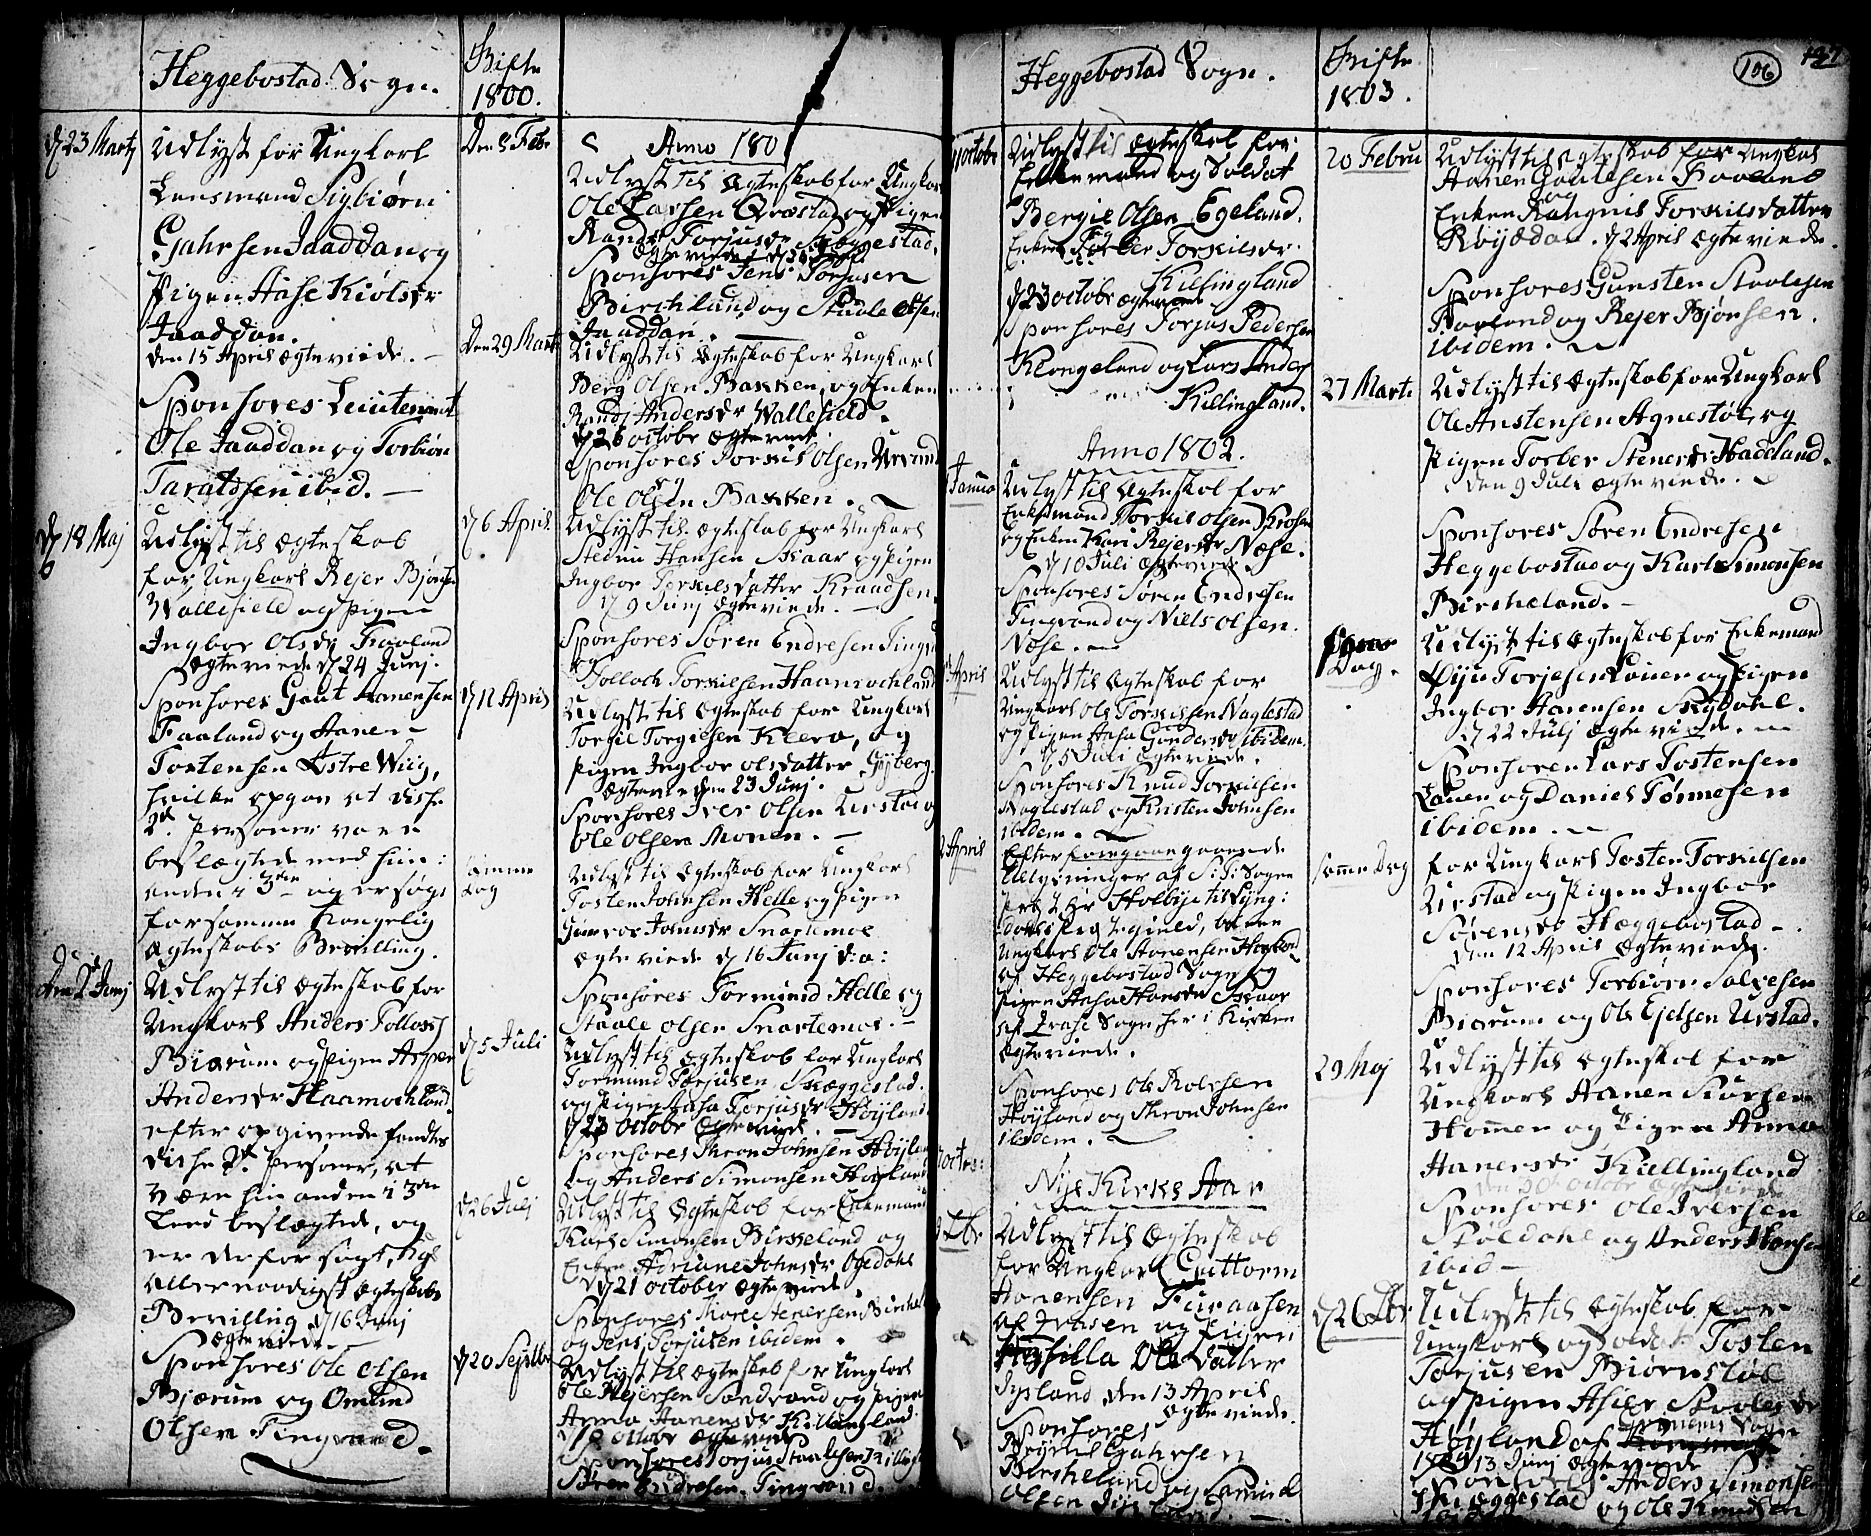 Heggebostad Sogn.
Viste
1800.
d 23 Marti
Udlyst for Ungkarl
Lensmand Sigbiørn
Gjahrsen Jaaddan og
Pigen Aase Kiølsdr
Jaaddan.
Den 15 April Ægteviede.
Sponsores Leiutenant
Ole Jaaddan og Torbiørn
Taraldsen ibid.
d 18 Maj
Udlyst til Ægteskab
for Ungkarl Rejer Bjønsen
Wallefield og Pigen
Ingbor Olsdr Faaland
Ægteviede d 24 Junj.
Sponsores Gaut Aanensen
Faaland og Aanen
Tostensen Østre Wiig,
hvilke opgav at disse
2de Personer vare
beslægtede med hin
anden i 3die og ersøgt
for samme Kongelig
Ægteskabs Bevilling.
Den 2 Junj
Udlyst til Ægteskab for
Ungkarl Anders Tollock
Biærum og Pigen Asper
Andersdr Haamochland
efter opgivende fandtes
disse 2de Personer, at
være hin anden i 3die
Leed beslægtede, og
er derfor søgt, Kgl
allernaadigst Ægteskabs
Bevilling d 16 Junj
Ægteviede
Sponsores Ole Olsen
Bjærum og Omund
Olsen Tingvand.
Den 8 Febr
Anno 180
Udlyst til Ægteskab for Ungkarl
Ole Larsen Qvæstad og Pigen
Rande Torjusdr Skeggestad.
Sponsores Jens Torjusen
Birchland og Staale Olsen
Jaaddan.
Den 29 Marti
Udlyst til Ægteskab for Ungkarl
Berg Olsen Bakken, og Enken
Randi Andersdr Wallefield.
d 26 octobr Ægteviet
Sponsores Torkild Olsen Urvand
Ole Olsen Bakken.
d 6 April
Udlyst til Ægteskab for Ungkarl
Stedni Hansen Skaar og Pigen
Ingbor Torkilsdatter Kraadsen.
d 9 Junj Ægteviede.
Sponsores Søren Endresen Tingv
Tollock Torkilsen Haamochland
d 12 April
Udlyst til Ægteskab for Ungkarl
Torgie Torgiesen Kleva, og
Pigen Ingbor Olsdatter Gyberg.
Ægteviede den 23 Junj.
Sponsores Iver Olsen Urstad og
Ole Olsen Monen.
Samme
Dag
Udlyst til Ægteskab for Ungkarl
Tosten Johnsen Helle og Pigen
Gunvor Johnsdr Snartemoe
Ægteviede d 16 Junj d: a:
Sponsores Tormund Helle og
Staale Olsen Snartemoe.
d 5 Juli
Udlyst til Ægteskab for Ungkarl
Tormund Torjusen Skeggestad.
og Pigen Aasa Torjusdr Høyland.
d 23 Octobr Ægteviede.
Sponsores Thron Johnsen Høyland
og Anders Simonsen Høyland
d 26 Julj
Udlyst til Ægteskab for Enkemand
Karl Simonsen Birkeland og
Enken Adriane Johnsdr Ogedahl
d 21 October Ægteviede.
Sponsores Tore Andersen Birkel
og Jens Torjusen ibidem.
d 20 Septbr
Udlyst til Ægteskab for Ungkarl
Ole Rejersen Sandvand og Pigen
Anna Aanensdr Killingland.
Octobr Ægteviede
Sponsores Torjus Staalesen Killingl
Søren Endresen Tingvand.
Heggebostad Sogn.
Viste
1803.
106
octobr
Udlyst til Ægteskab for
Enkemand og Soldat
Bergie Olsen Egeland.
og
Enken Torber Torkilsdr.
Killingland
d 23 octobr Ægteviede
Sponsores Torjus Pedersen
Klongeland og Lars Anders
Killingland.
Anno 1802.
Janua
Udlyst til Ægteskab for
Enkemand Torkild Olsen Krosen
og Enken Kari Rejersdr Næse.
d 10 Juli Ægteviede
Sponsores Søren Endresen
Tingvand og Niels Olsen
Næse.
April
Udlyst til Ægteskab for
Ungkarl Ole Torkilsen Naglestad
og Pigen Aasa Gundersdr ibidem.
d 5 Juli Ægteviede.
Sponsores Knud Torkilsen
Naglestad og Kristen Johnsen
ibidem.
2 April
Efter foregaaende
Udlysninger af S: T: Sogne
Prest Hr Holbye til Lyng:
dahls Prestegield, bleven
Ungkarl Ole Aanensen Høyland
af Heggebostad Sogn og
Pigen Aasa Hansdr Skaar
af Qvaase Sogn her i Kirken
Ægteviede.
Sponsores Ole Rolvsen
Høyland og Thron Johnsen
ibidem.
octbr:
Nye Kirke Aar
Udlyst til Ægteskab
for Ungkarl Guttorm
Aanensen Furaasen
af Qvaasen og Pigen
Sissilla Olsdatter
Sysland den 13 April
Ægteviede.
Sponsores
Brynild Gjahrsen
Bircheland og Omund
20 Febru
Udlyst til Ægteskab for Ungkarl
Aanen Gautesen Faaland
og
Enken Rangnil Torkilsdatter
Røysdan. d 2 April Ægteviede.
Sponsores Gunsten Staalesen
Faaland og Rejer Bjønsen.
ibidem.
27 Marti
Udlyst til Ægteskab for Ungkarl
Ole Anstensen Agnestøl, og
Pigen Torber Stenersdr Haddland.
Den 9 Juli Ægteviede.
Sponsores Søren Endresen
Heggebostad og Karl Simonsen
Bircheland.
Samme
Dag.
Udlyst til Ægteskab for Enkemand
Øiju Torjesen Lauen og Pigen
Ingbor Aanensen Skydahl.
d 22 Julj Ægteviede.
Sponsoren Lars Tostensen
Lauen og Daniel Tønnesen
ibidem.
Samme Dag
for Ungkarl Tosten Torkilsen
Urstad og Pigen Ingbor
Sørensdr Heggebostad.
Den 12 April Ægteviede.
Sponsores Torbiørn Salvesen
Biærum og Ole Ejelsen Urstad.
29 Maj
Udlyst til Ægteskab for
Ungkarl Aanen Siursen
Hommen og Pigen Anna
Aanensdr Kiellingland
den 30 October Ægteviede
Sponsores Ole Iversen
Skøldahl og Anders Hansen
ibid
d 26 Xbr
Udlyst til Ægteskab for
Ungkarl og Soldat Tosten
Torjusen Biørnstøl
og Pigen Aseer Staalesdr
Høyland af
Sogn
1804 13 Junj Ægteviede
Sponsores Anders Simonsen
Skeggestad og Ole Knudsen